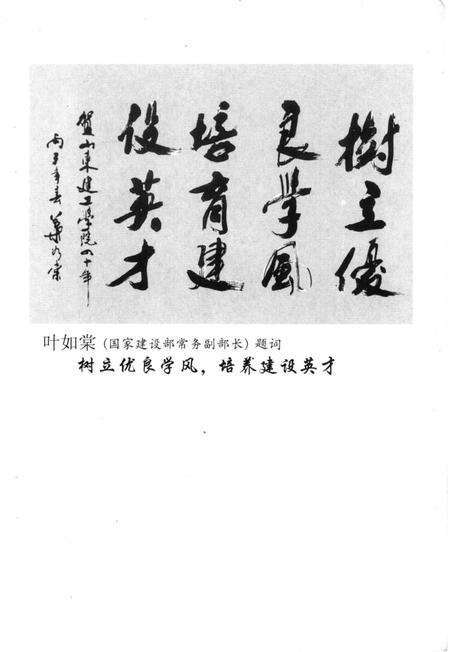 樹立優
良學風
培育建
设英才
賀山东建工學院四十年
丙子年春 葉如棠
叶如棠（国家建设部常务副部长）题词
树立优良学风，培养建设英才